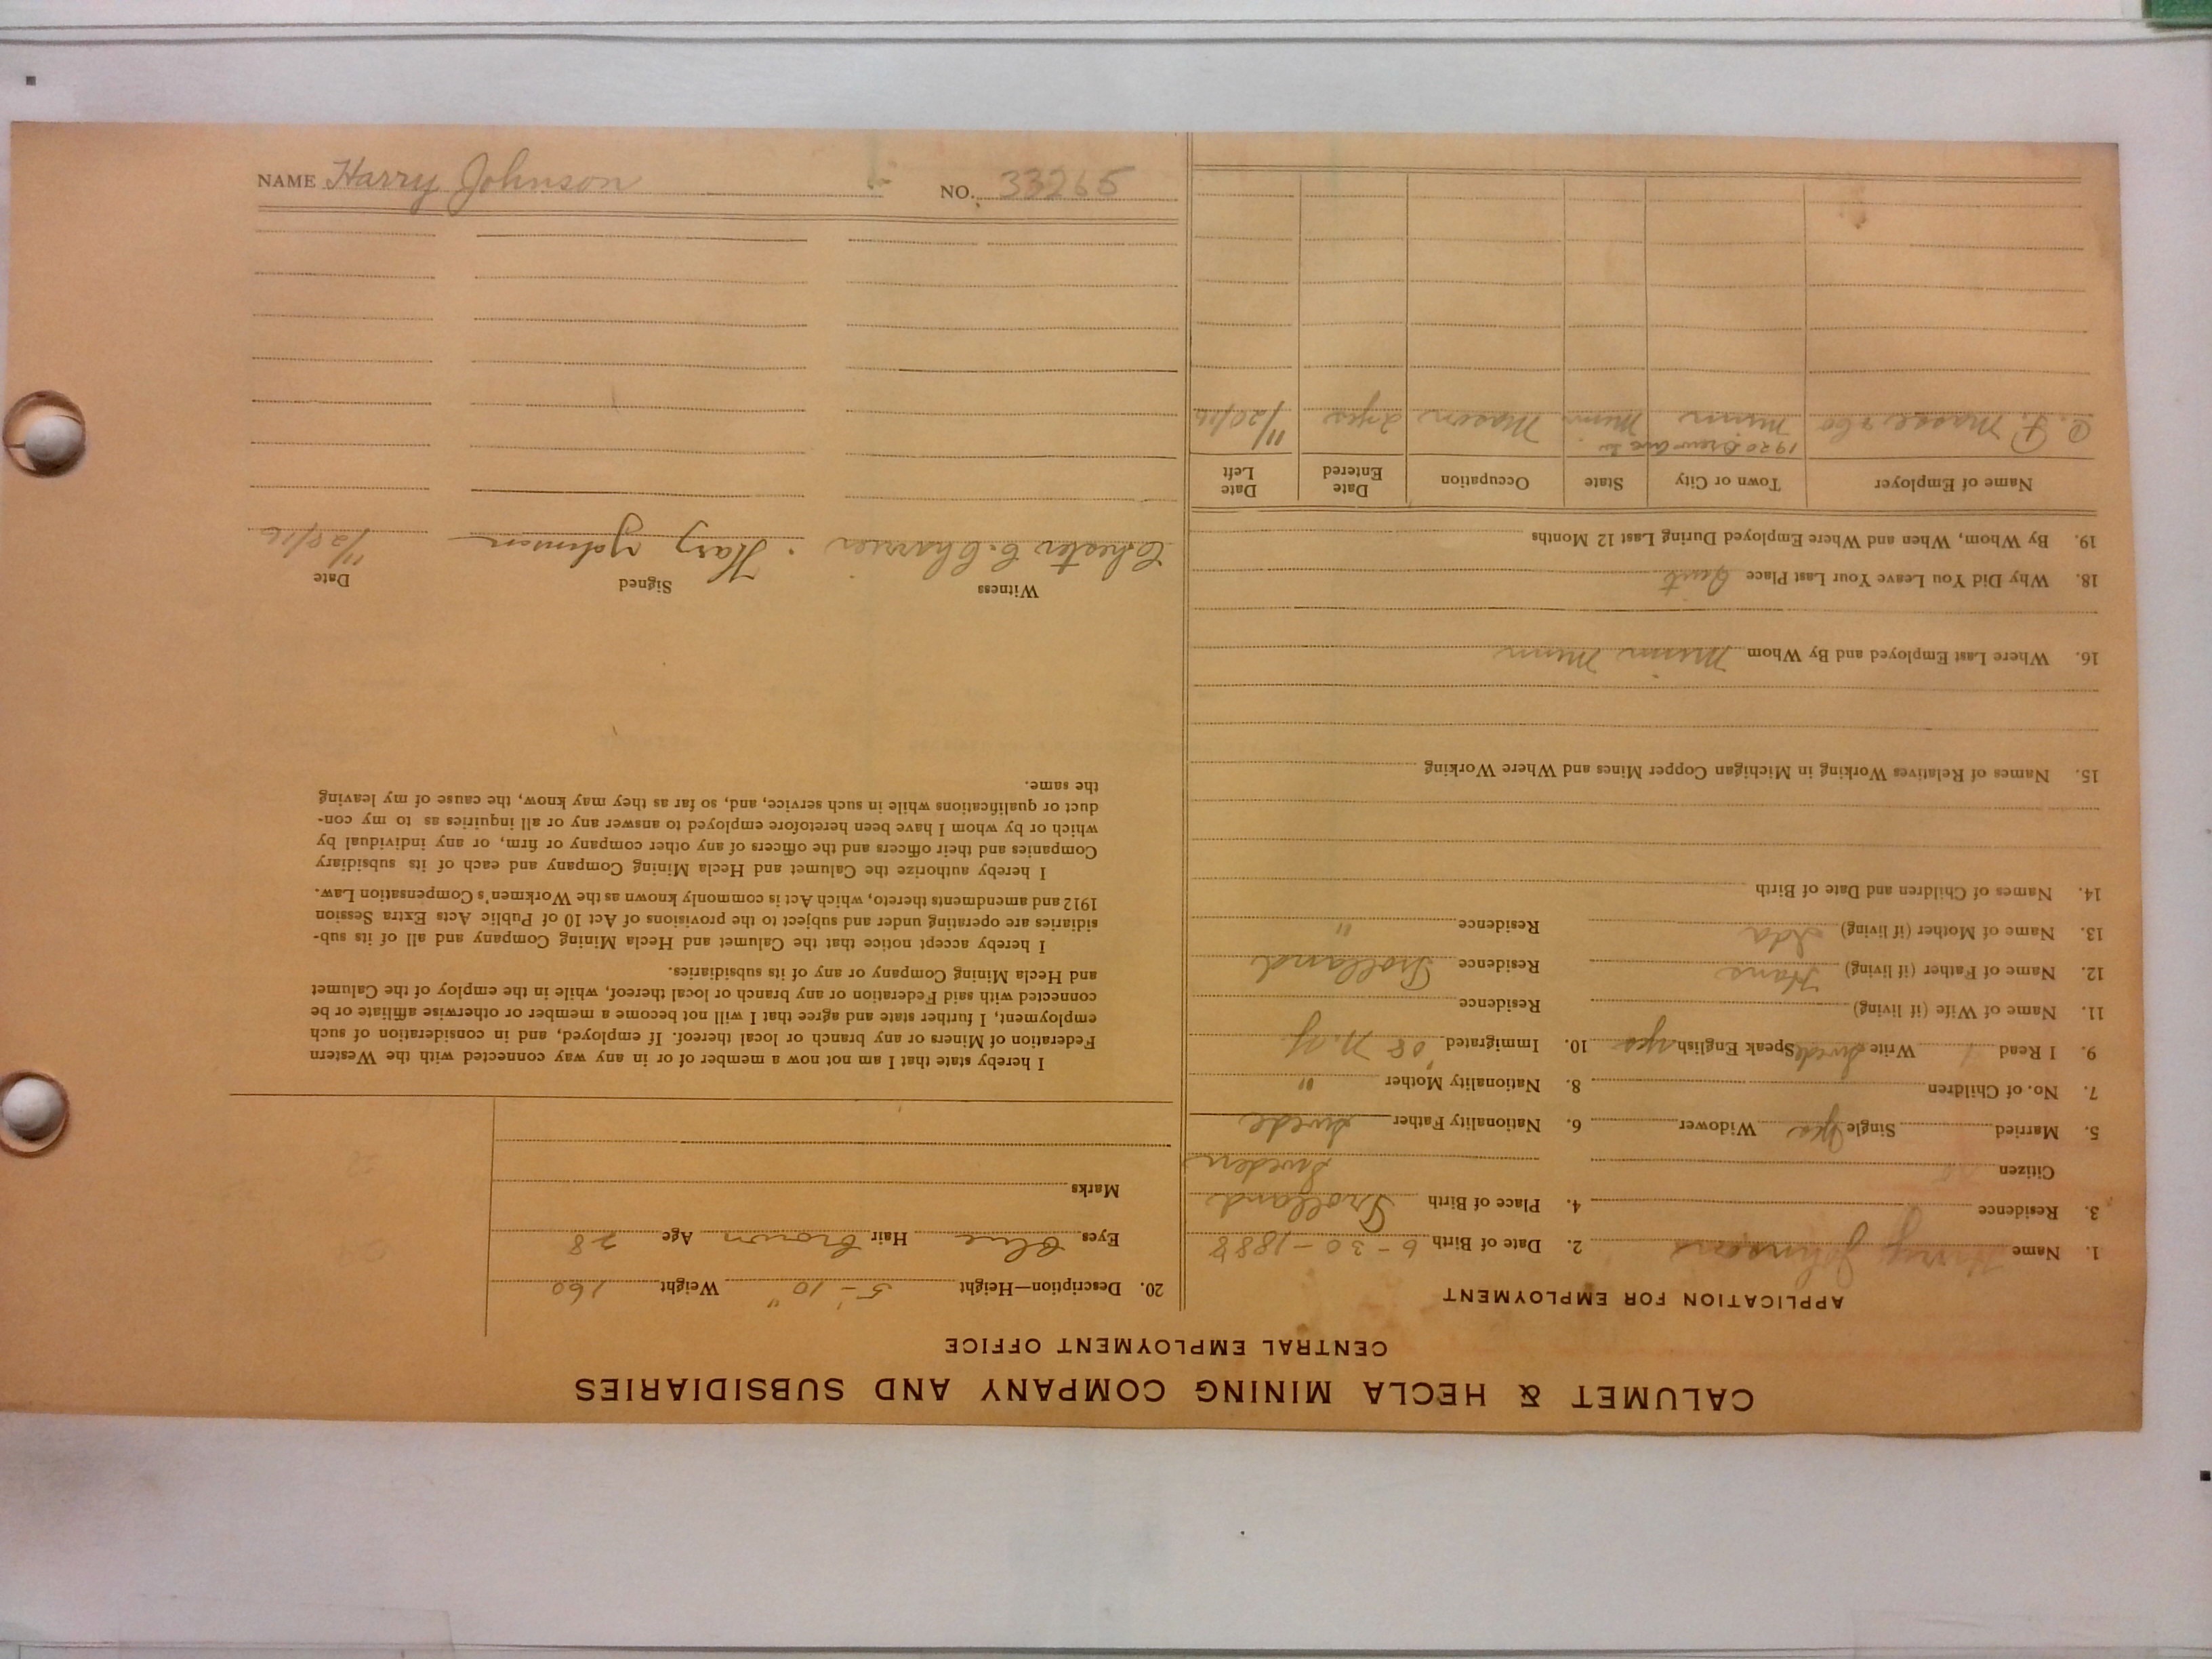 CALUMET & HECLA MINING COMPANY AND SUBSIDIARIES
CENTRAL EMPLOYMENT OFFICE
APPLICATION FOR EMPLOYMENT
1. Name Harry Johnson 2. Date of Birth 6-30-1888
3. Residence 4. Place of Birth
Citizen Sweden
5. Married Single Yes Widower 6. Nationality Father Swede
7. No. of Children 8. Nationality Mother "
9. I Read Write Swede Speak English yes 10. Immigrated '08 N.Y.
11. Name of Wife (if living) Residence
12. Name of Father (if living) Hans Residence
13. Name of Mother (if living) Ida Residence "
14. Names of Children and Date of Birth
15. Names of Relatives Working in Michigan Copper Mines and Where Working
16. Where Last Employed and By Whom Minn
18. Why Did You Leave Your Last Place Quit
19. By Whom, When and Where Employed During Last 12 Months
Name of Employer Town or City State Occupation Date Entered Date Left
1920 Drew Ave
Minn Minn Mason 2 yrs 11/20/16
20. Description—Height 5'-10" Weight 160
Eyes Blue Hair Brown Age 28
Marks
I hereby state that I am not now a member of or in any way connected with the Western
Federation of Miners or any branch or local thereof. If employed, and in consideration of such
employment, I further state and agree that I will not become a member or otherwise affiliate or be
connected with said Federation or any branch or local thereof, while in the employ of the Calumet
and Hecla Mining Company or any of its subsidiaries.
I hereby accept notice that the Calumet and Hecla Mining Company and all of its sub-
sidiaries are operating under and subject to the provisions of Act 10 of Public Acts Extra Session
1912 and amendments thereto, which Act is commonly known as the Workmen's Compensation Law.
I hereby authorize the Calumet and Hecla Mining Company and each of its subsidiary
Companies and their officers and the officers of any other company or firm, or any individual by
which or by whom I have been heretofore employed to answer any or all inquiries as to my con-
duct or qualifications while in such service, and, so far as they may know, the cause of my leaving
the same.
Witness Signed Date
Chester C. Harry Johnson 11/28/16
NAME Harry Johnson NO. 33265